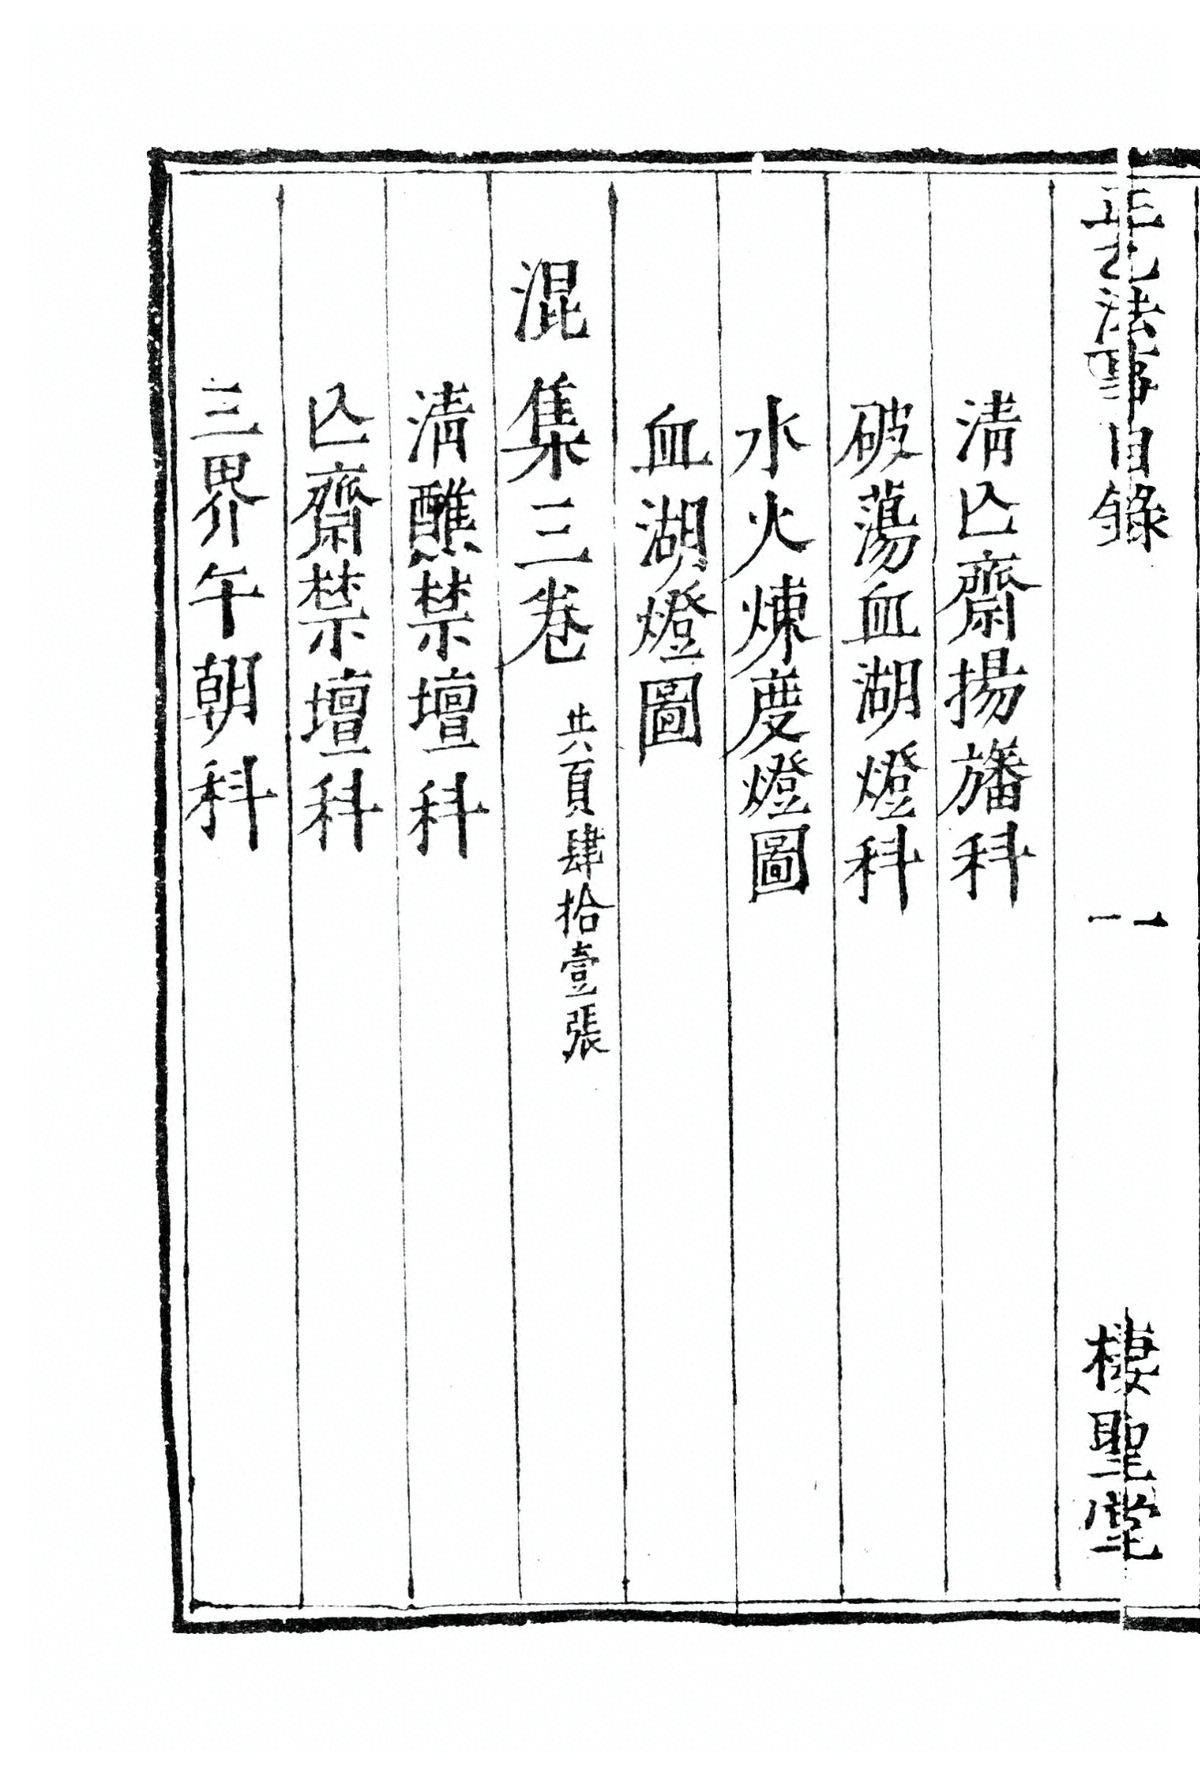 正乙法事目錄 一 棲聖堂
清亾齋揚旛科
破蕩血湖燈科
水火煉度燈圖
血湖燈圖
混集三卷 共六頁肆拾壹張
清醮禁壇科
亾齋禁壇科
三界午朝科